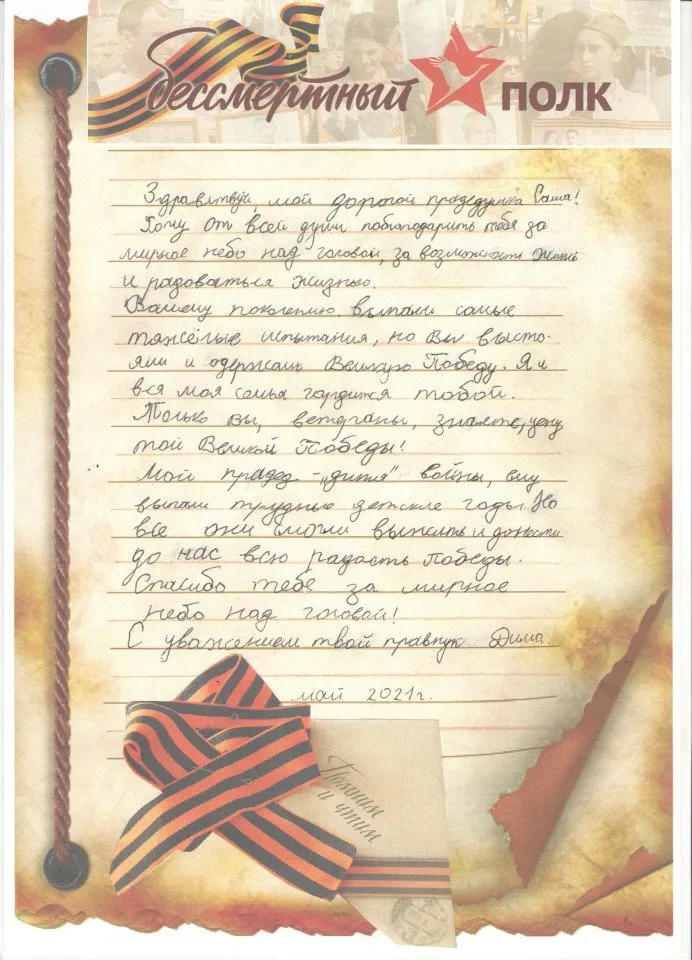 бессмертный ПОЛК
Здравствуй, мой дорогой прадедушка Саша!
Хочу от всей души поблагодарить тебя за
мирное небо над головой, за возможность жить
и радоваться жизнью.
Вашему поколению выпали самые
тяжёлые испытания, но Вы высто-
яли и одержали Великую Победу. Я и
вся моя семья гордится тобой.
Только вы, ветераны, знаете, цену
той Великой Победы!
Мой прадед - „дитя" войны, ему
выпали трудные детские годы. Но
все они смогли выжить и донести
до нас всю радость Победы.
Спасибо тебе за мирное
небо над головой!
С уважением твой правнук Дима.
май 2021г.
Помним
и чтим